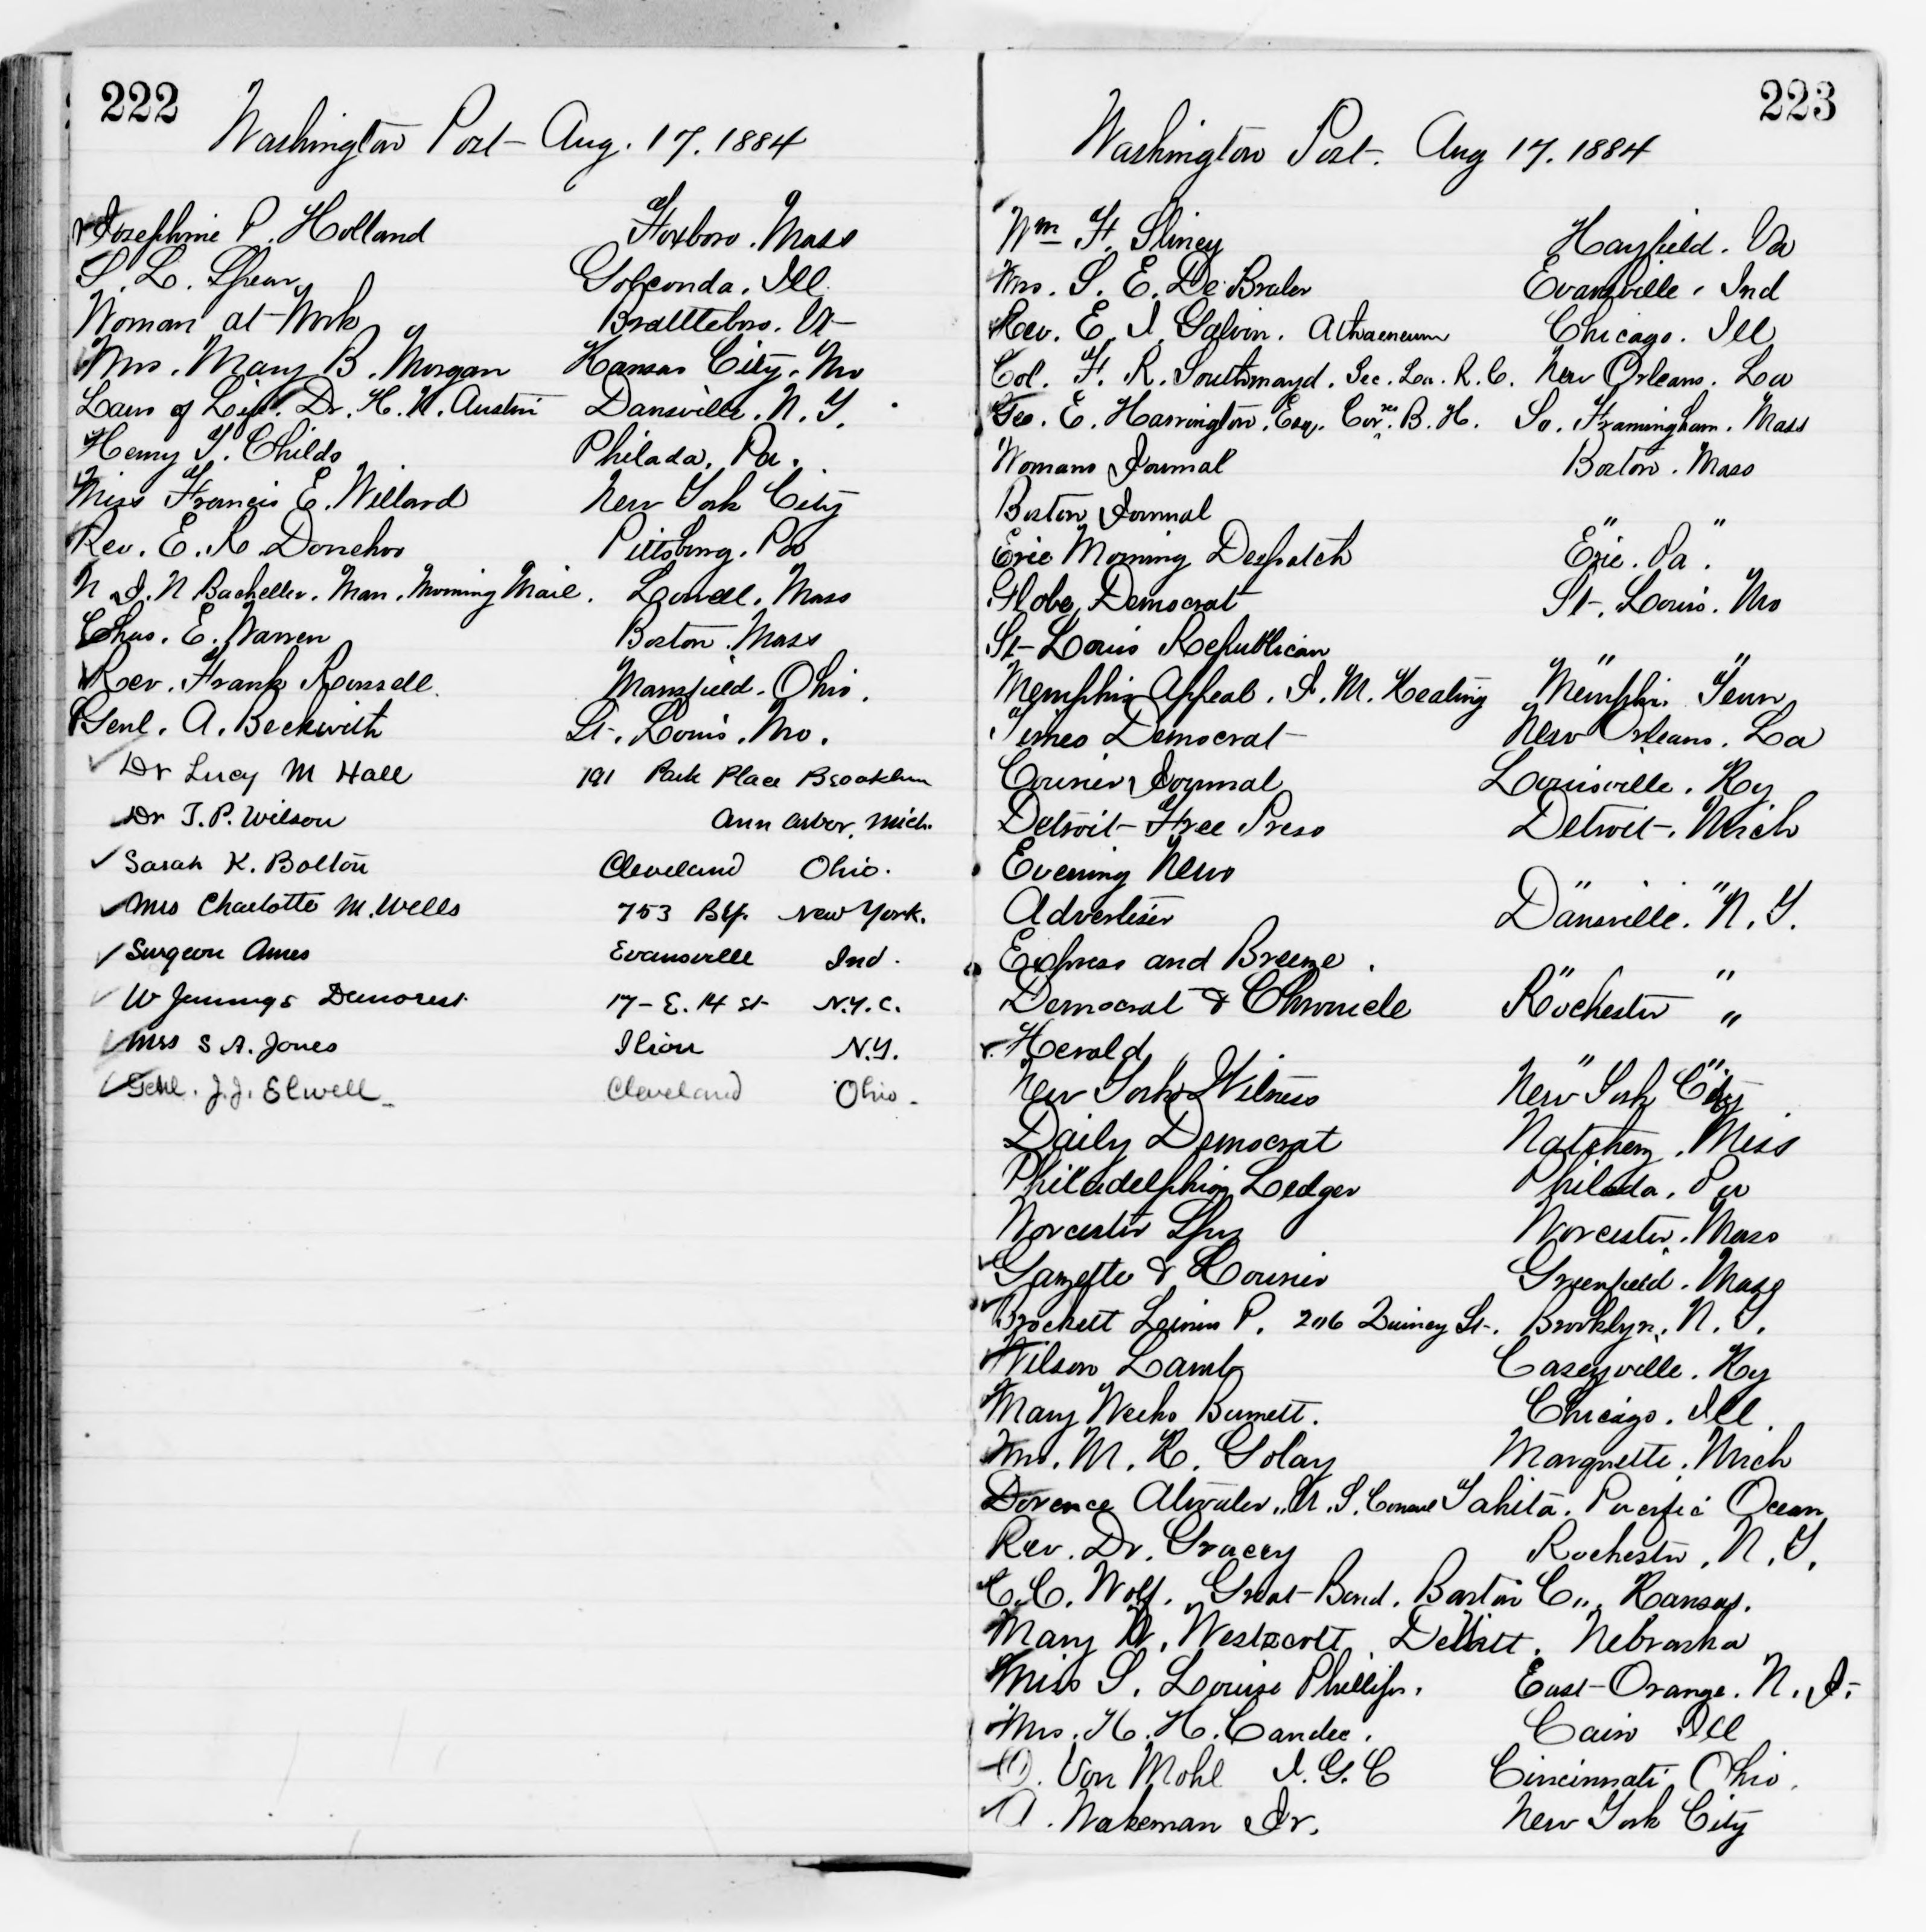 222
Washington Post - Aug. 17. 1884
Josephine P. Holland Foxboro. Mass
S. L. Spear Golconda. Ill.
Woman at Work Brattleboro. Vt
Mrs. Mary B. Morgan Kansas City. Mo
Laws of Life. Dr. H. K. Austin Dansville. N. Y.
Henry T. Childs Philada. Pa.
Miss Francis E. Willard New York City
Rev. E. R. Donehoo Pittsburg. Pa
N. J. N Bacheller. Man. Morning Mail. Lowell. Mass
Chas. E. Warren Boston. Mass
Rev. Frank Russell. Mansfield. Ohio.
Genl. A. Beckwith St. Louis. Mo.
Dr Lucy M Hall 191 Park Place Brooklyn
Dr T. P. Wilson Ann Arbor, Mich.
Sarah K. Bolton Cleveland Ohio.
Mrs Charlotte M. Wells 753 Bty. New York.
Surgeon Ames Evansville Ind.
W Jennings Demorest 17 - E. 14 st N.Y.C.
Mrs S A. Jones Ilion N.Y.
Genl. J. J. Elwell Cleveland Ohio -
223
Washington Post. Aug 17. 1884
Wm F. Sliney Hayfield. Va
Mrs. S. E. De Bruler Evansville. Ind
Rev. E. I. Galvin. Athaeneum Chicago. Ill
Col. F. R. Southmayd. Sec. La. R. C. New Orleans. La
Geo. E. Harrington. Esq. Cor. B. H. So. Framingham. Mass
Womans Journal Boston. Mass
Boston Journal " "
Erie Morning Despatch Erie. Pa.
Globe Democrat St. Louis. Mo
St - Louis Republican " "
Memphis Appeal. J. M. Keating Memphis Tenn
Times Democrat New Orleans. La
Courier Journal Louisville. Ky
Detroit Free Press Detroit. Mich
Evening News " "
Advertiser Dansville. N. Y.
Express and Breeze. " "
Democrat & Chronicle Rochester "
Herald " "
New York Witness New York City
Daily Democrat Natchez. Miss
Philadelphia Ledger Philada. Pa
Worcester Spy Worcester. Mass
Gazette & Courier Greenfield. Mass
Brockett Linus P. 206 Quincy St. Brooklyn. N. Y.
Wilson Lamb Caseyville. Ky
Mary Weeks Burnett. Chicago. Ill.
Mrs. M. R. Golay Marquette. Mich
Dorence Atwater. U. S. Consul Tahita. Pacific Ocean
Rev. Dr. Gracey Rochester. N. Y.
C. C. Wolf. Great Bend. Barton Co., Kansas.
Mary N. Westcott DeWitt. Nebraska
Miss S. Louise Phillips. East Orange. N. J.
Mrs. H. H. Candee. Cairo Ill
O. Von Mohl I. G. C Cincinnati Ohio.
A. Wakeman Jr. New York City